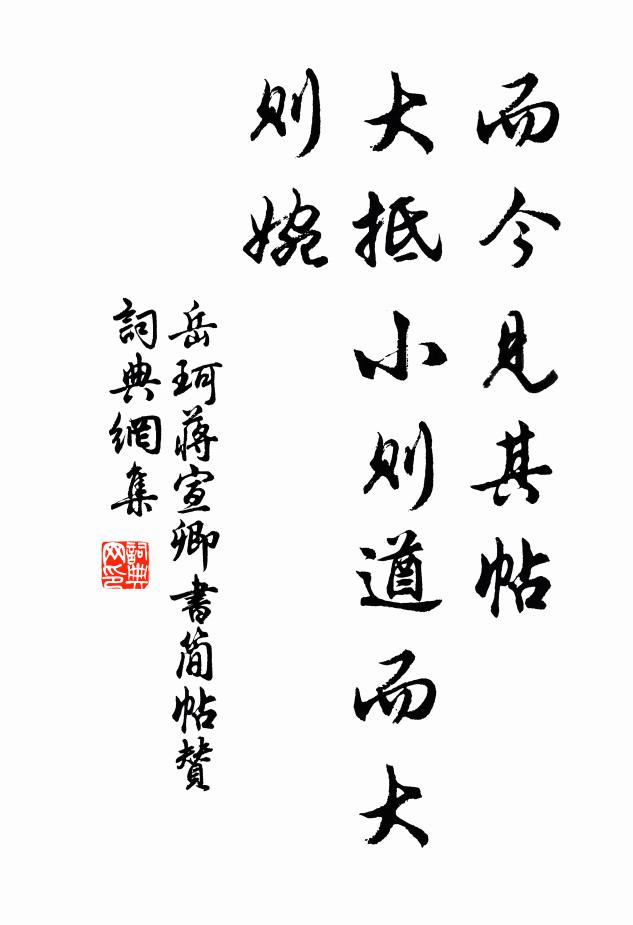 而今見其帖
大抵小則遒而大
則婉
岳珂蔣宣卿書簡帖贊
詞典網集
詞典
网印